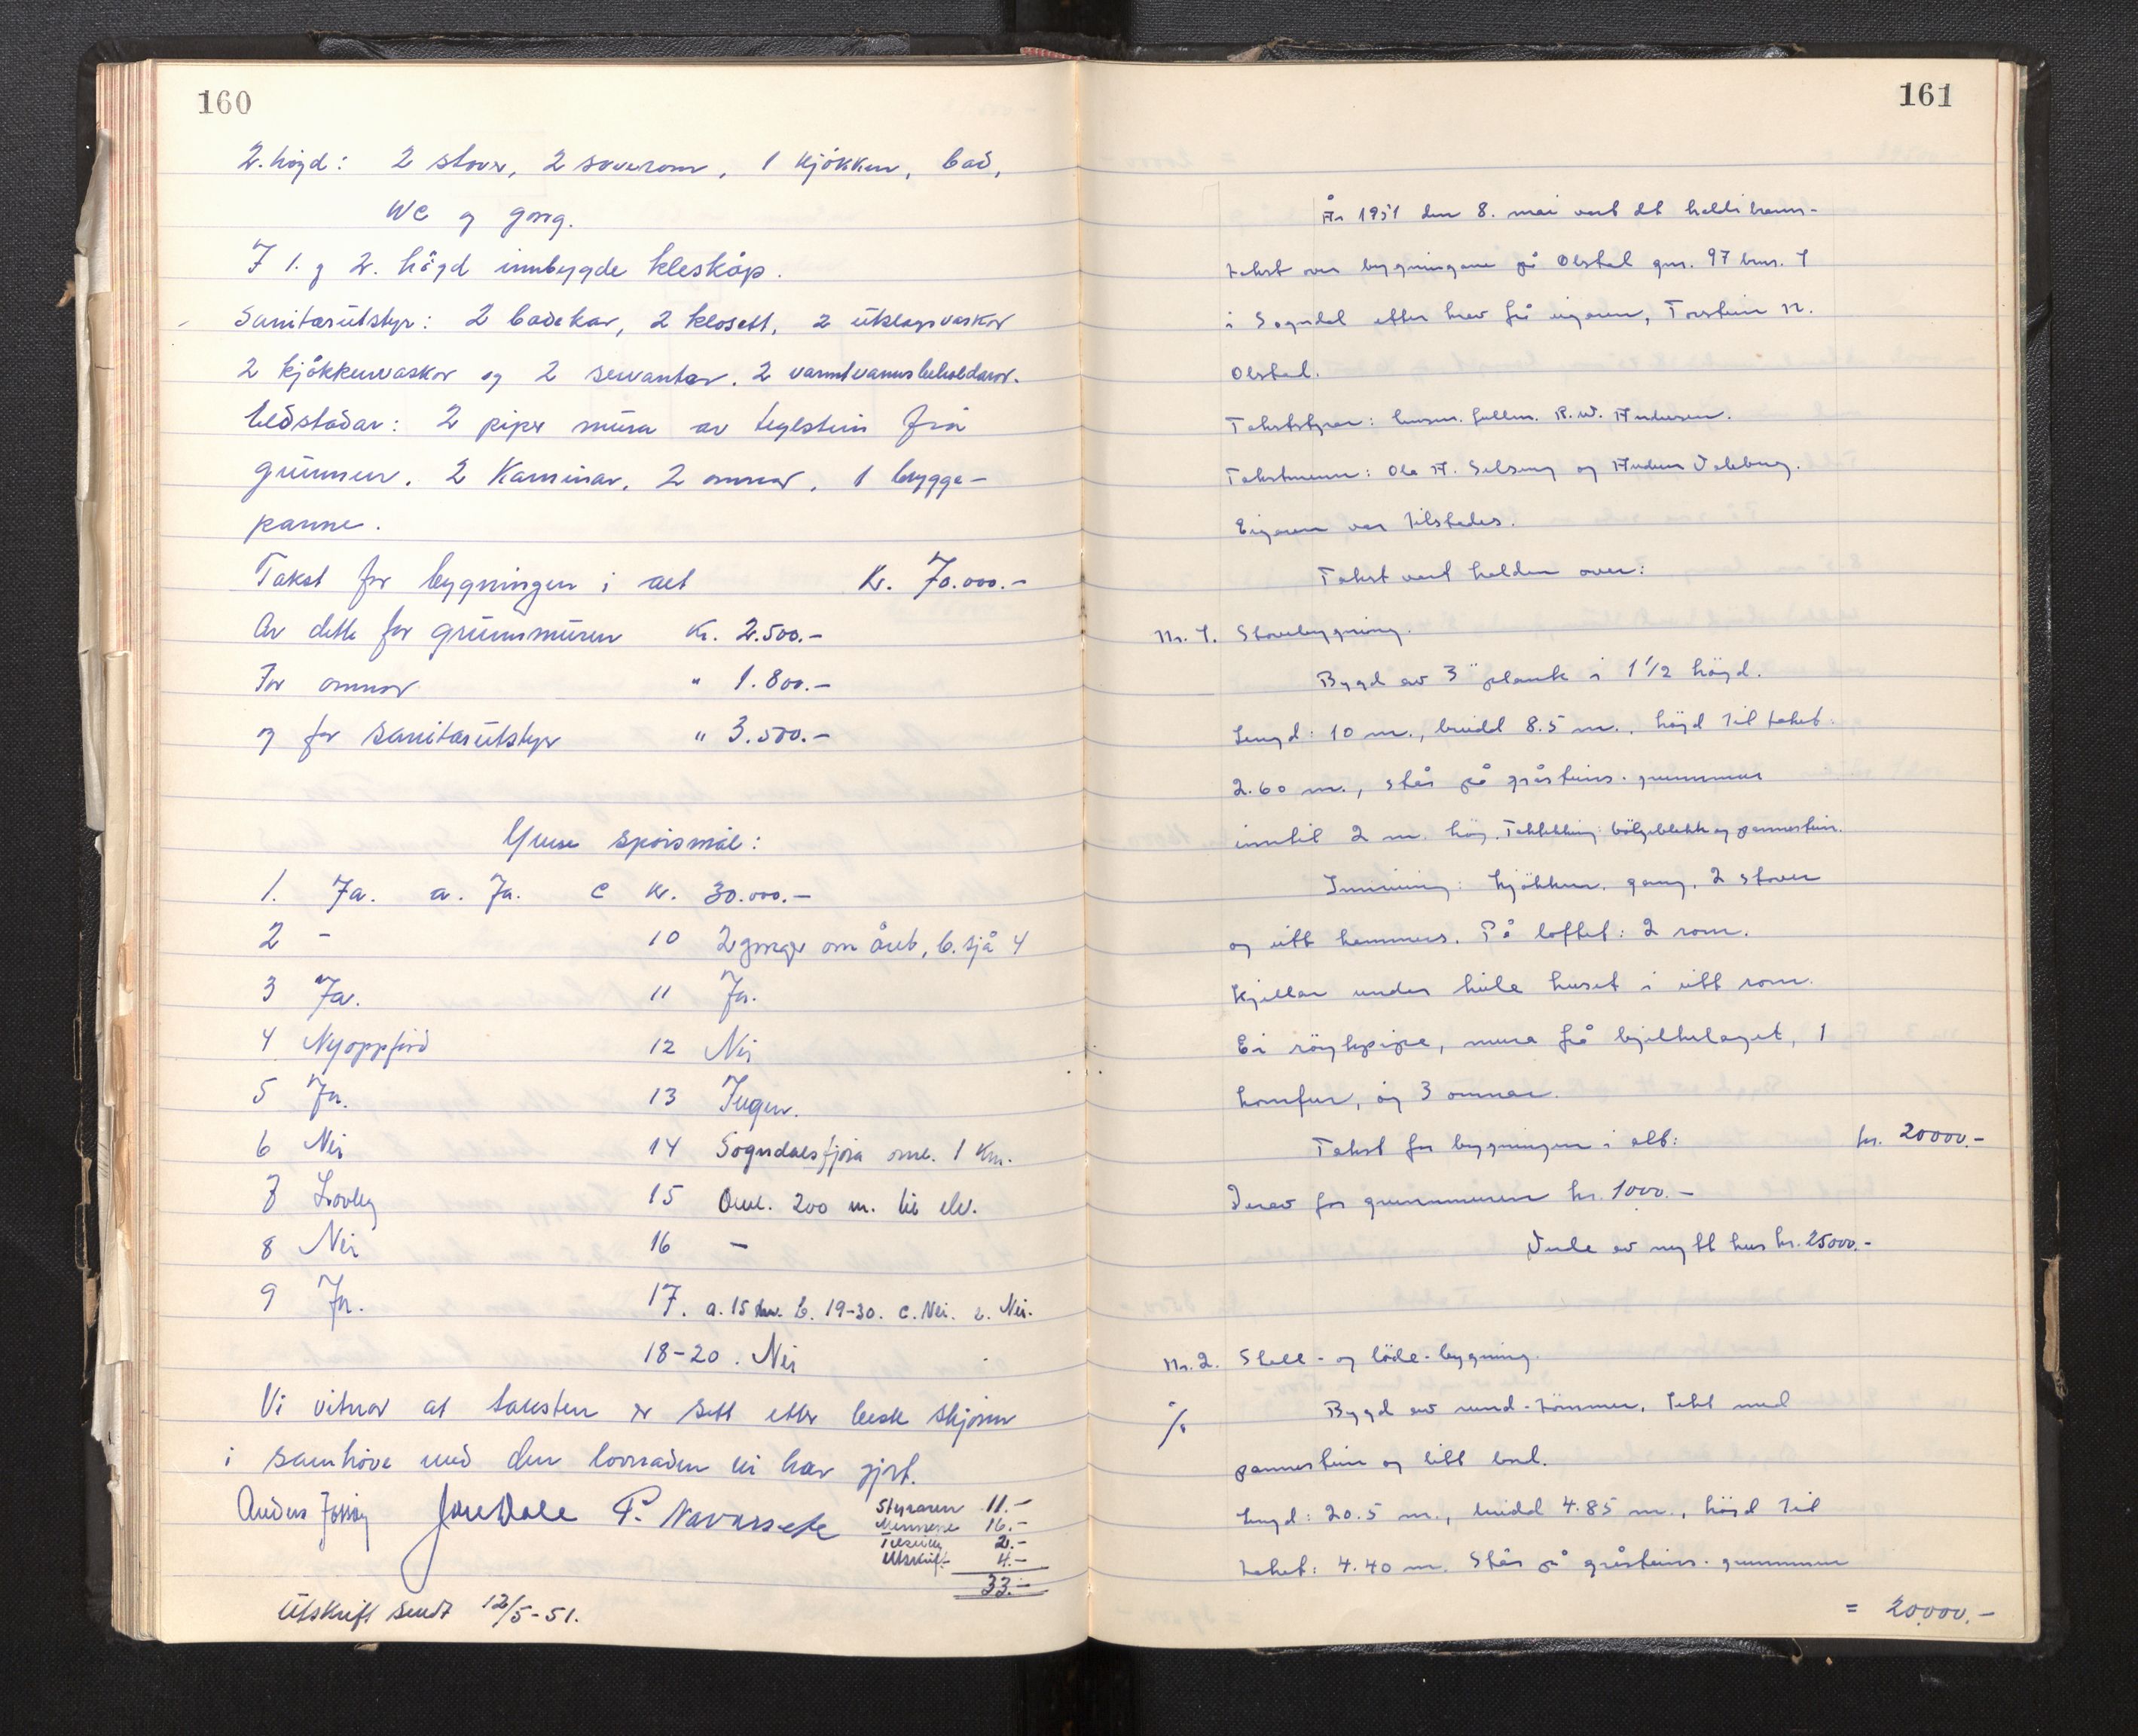 160
2. høgd: 2 stover, 2 soverom, 1 kjøkken, bad,
WC og gang.
I 1. og 2. høgd innbygde kleskåp.
Sanitærutstyr: 2 badekar, 2 klosett, 2 utslagsvaskar
2 kjøkkenvaskar og 2 servantar. 2 varmtvannsbeholdarar.
Eldstadar: 2 piper mura av teglstein frå
grunnen. 2 Kaminar, 2 omnar, 1 brygge-
panne.
Takst for bygningen i alt Kr. 70.000.-
Av dette for grunnmuren Kr. 2.500.-
For omnar " 1.800.-
og for sanitærutstyr " 3.500.-
Ymse spørsmål:
1. Ja. a. Ja. c Kr. 30.000.-
2 - 10 2 gonger om året, b. sjå 4
3 Ja. 11 Ja.
4 Nyoppførd 12 Nei
5 Ja. 13 Ingen.
6 Nei 14 Sogndalsfjøra oml. 1 Km.
7 Lovleg 15 Oml. 200 m. til elv.
8 Nei 16 -
9 Ja. 17. a. 15 b. 19-30. c. Nei. Nei.
18-20. Nei
Vi vitnar at taksten er sett etter beste skjønn
i samhøve med den lovnaden vi har gjort.
Anders P. Navarsete
Styraren 11.-
Mennene 16.-
2.-
Utskrift 4.-
33.-
Utskrift sendt 12/5-51.
161
År 1951 den 8. mai vart det halde brann-
takst over bygningane på Olstad gnr. 97 bnr. 1
i Sogndal etter krav frå eigaren, Torstein N.
Olstad.
Takststyrar: lensm. fullm. R. W. Andersen.
Takstmenn: Ola A. Selseng og Anders Daleberg.
Eigaren var tilstades.
Takst vart halden over:
Nr. 1. Stovebygning.
Bygd av 3" plank i 1 1/2 høgd.
Lengd: 10 m., breidd 8.5 m., høgd til taket
2.60 m., står på gråsteins-grunnmur
inntil 2 m. høg. Taktekking: bølgeblekk og pannestein.
Innreiing: kjøkken, gang, 2 stover
og eitt kammers. På loftet: 2 rom.
Kjellar under heile huset i eitt rom.
Ei røykpipe, mura frå bjelkelaget, 1
komfyr, og 3 omnar.
Takst for bygningen i alt: kr. 20000.-
Derav for grunnmuren kr. 1000.-
Verde av nytt hus kr. 25000.-
Nr. 2. Stall- og løde-bygning.
% Bygd av rund-tømmer, tekt med
pannestein og litt bord.
Lengd: 20.5 m., breidd 4.85 m., høgd til
taket: 4.40 m. Står på gråsteins-grunnmur
= 20000.-